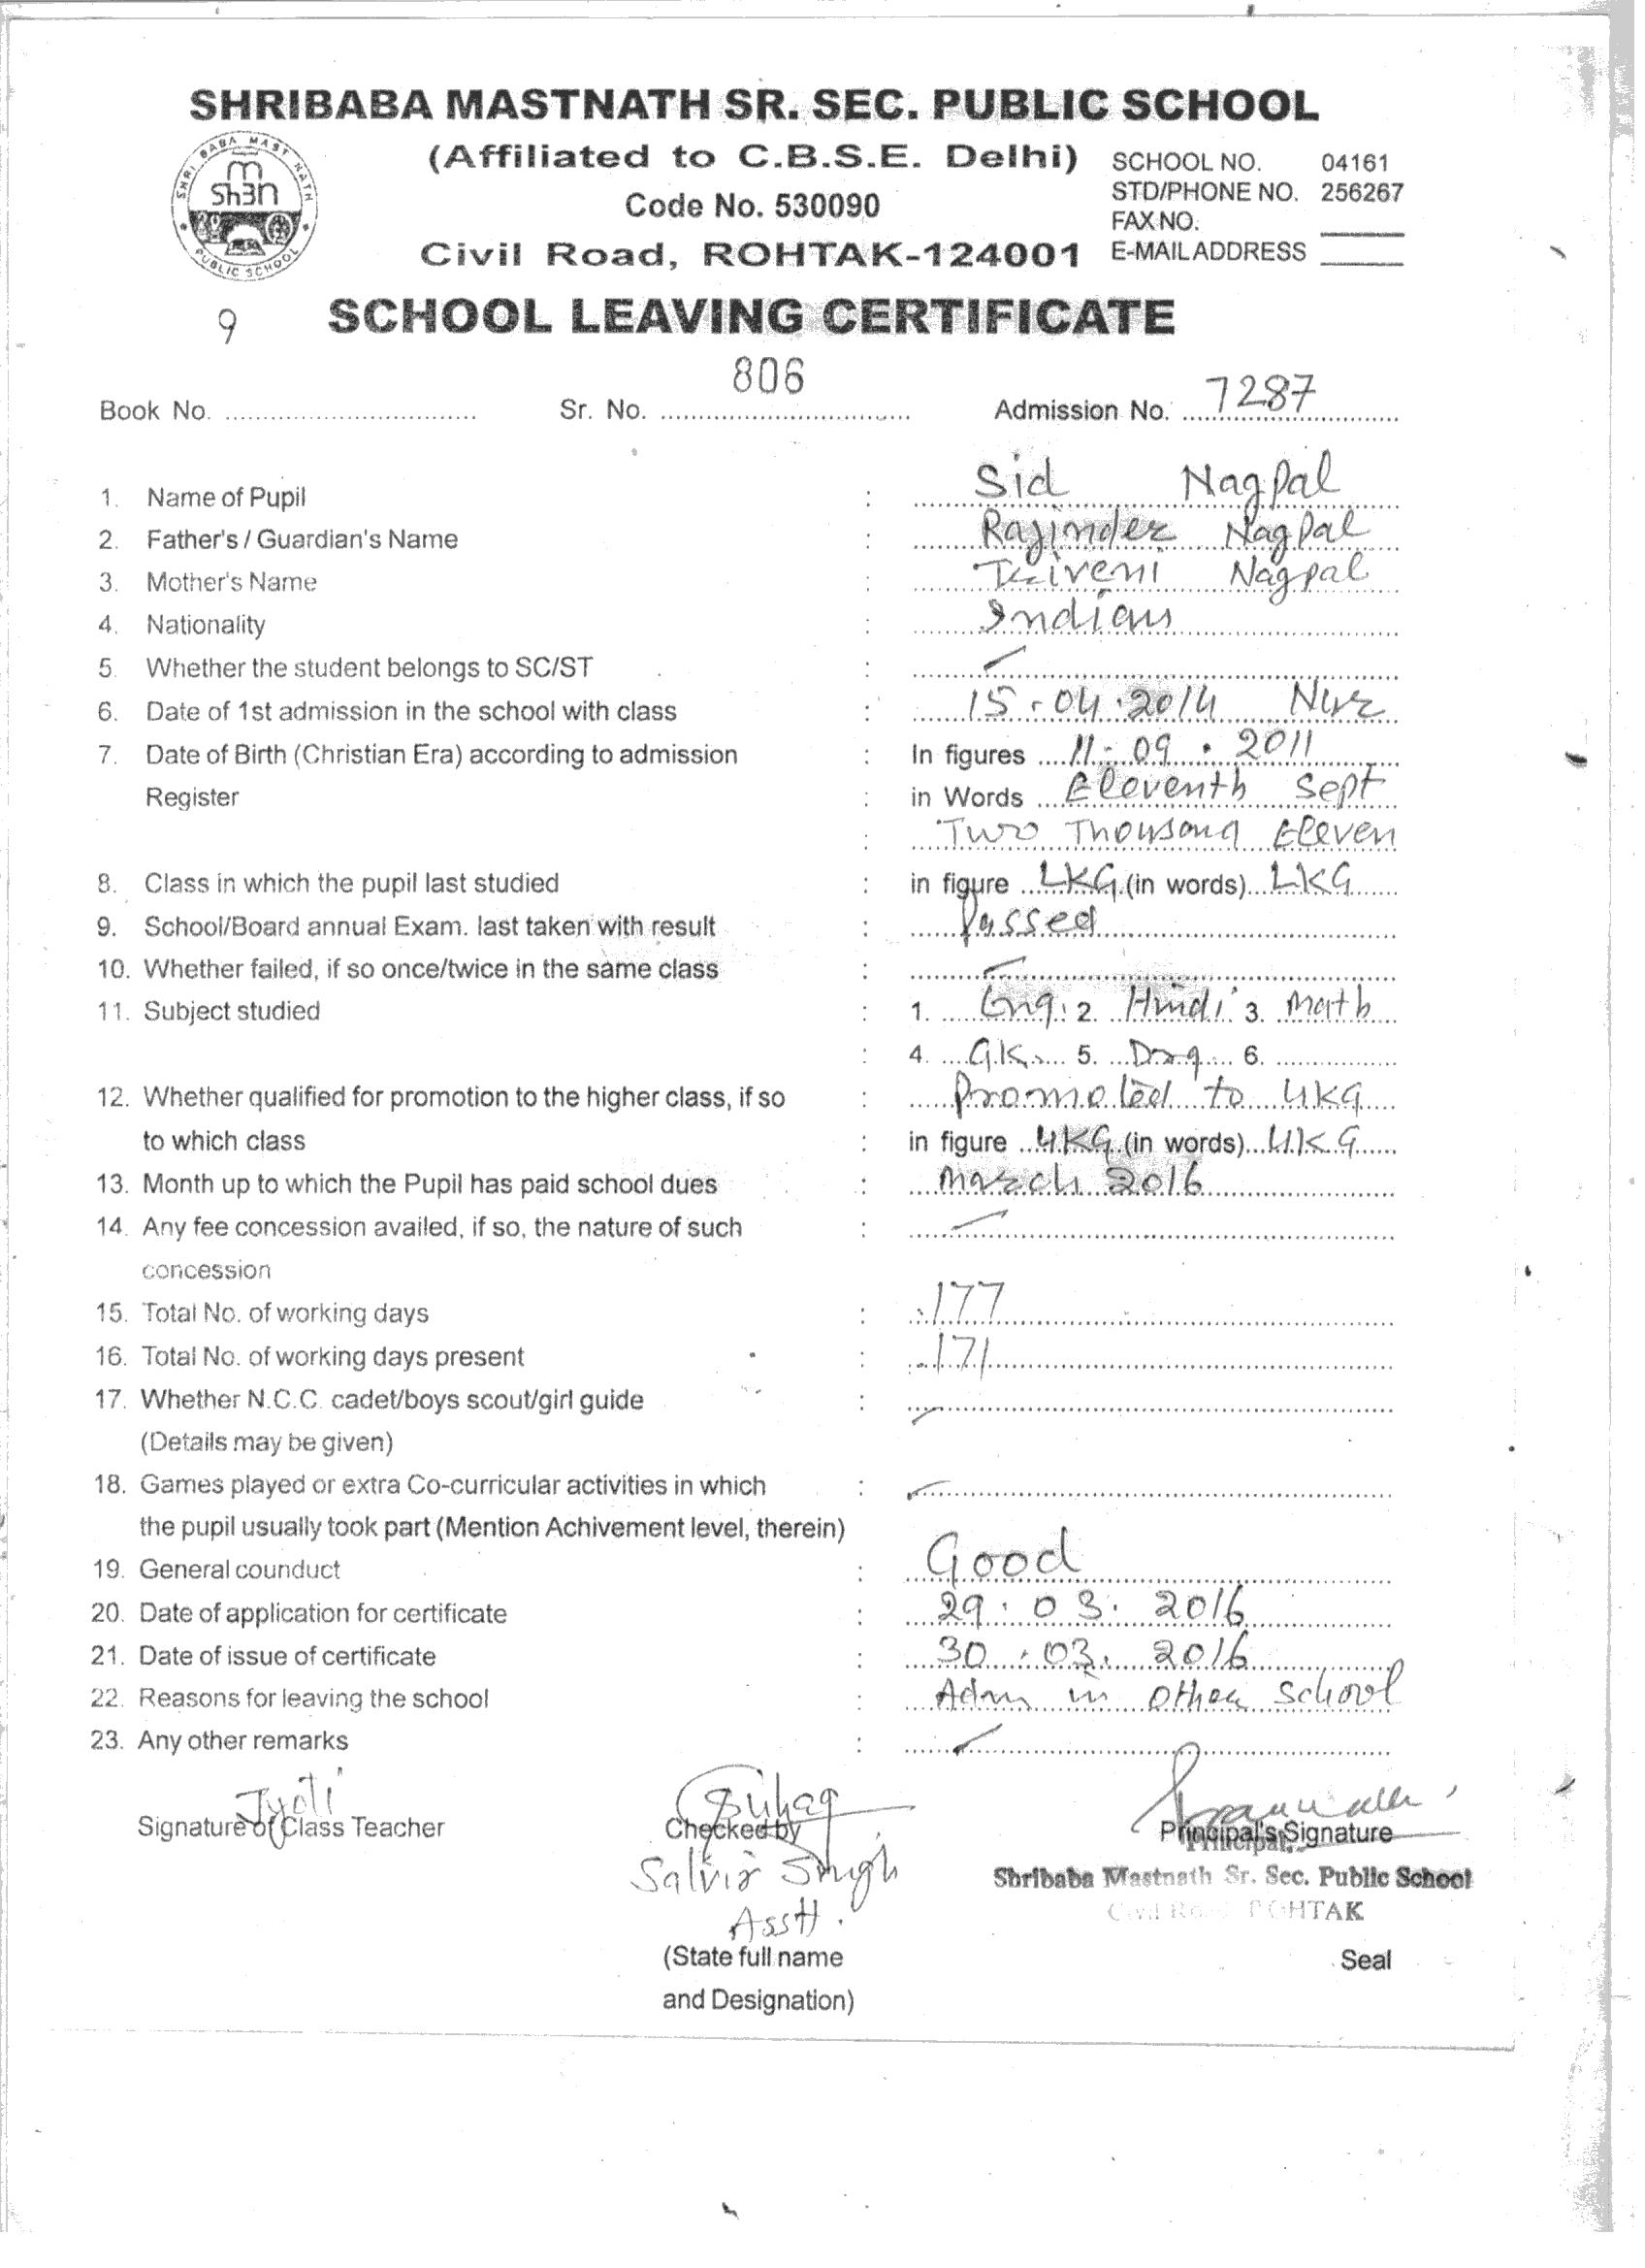 SHRIBABA MASTNATH SR. SEC. PUBLIC SCHOOL
SHRI BABA MAST NATH
PUBLIC SCHOOL
(Affiliated to C.B.S.E. Delhi)
Code No. 530090
Civil Road, ROHTAK-124001
SCHOOL NO. 04161
STD/PHONE NO. 256267
FAX NO.
E-MAIL ADDRESS
9 SCHOOL LEAVING CERTIFICATE
Book No. Sr. No. 806 Admission No. 7287
1. Name of Pupil : Sid Nagpal
2. Father's / Guardian's Name : Rajinder Nagpal
3. Mother's Name : Triveni Nagpal
4. Nationality : Indian
5. Whether the student belongs to SC/ST :
6. Date of 1st admission in the school with class : 15.04.2014 Nur
7. Date of Birth (Christian Era) according to admission : In figures 11.09.2011
Register : in Words Eleventh Sept
: Two Thousand Eleven
8. Class in which the pupil last studied : in figure LKG (in words) LKG
9. School/Board annual Exam. last taken with result : Passed
10. Whether failed, if so once/twice in the same class :
11. Subject studied : 1. Eng. 2. Hindi 3. Math
: 4. G.K. 5. Drg 6.
12. Whether qualified for promotion to the higher class, if so : Promoted to UKG
to which class : in figure UKG (in words) UKG
13. Month up to which the Pupil has paid school dues : March 2016
14. Any fee concession availed, if so, the nature of such :
concession
15. Total No. of working days : 177
16. Total No. of working days present : 171
17. Whether N.C.C. cadet/boys scout/girl guide :
(Details may be given)
18. Games played or extra Co-curricular activities in which :
the pupil usually took part (Mention Achivement level, therein)
19. General counduct : Good
20. Date of application for certificate : 29.03.2016
21. Date of issue of certificate : 30.03.2016
22. Reasons for leaving the school : Adm in other School
23. Any other remarks :
Jyoti
Signature of Class Teacher Checked by Principal's Signature
Principal
Singh
Shribaba Mastnath Sr. Sec. Public School
Asstt.
Civil Road ROHTAK
(State full name
Seal
and Designation)